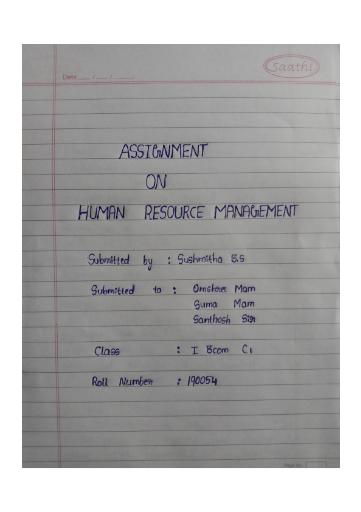 Saathi
Date ...... / ...... / ......
ASSIGNMENT
ON
HUMAN RESOURCE MANAGEMENT
Submitted by : Sushmitha S.S
Submitted to : Omshree Mam
Suma Mam
Santhosh Sir
Class : I Bcom C1
Roll Number : 190054
Page No.